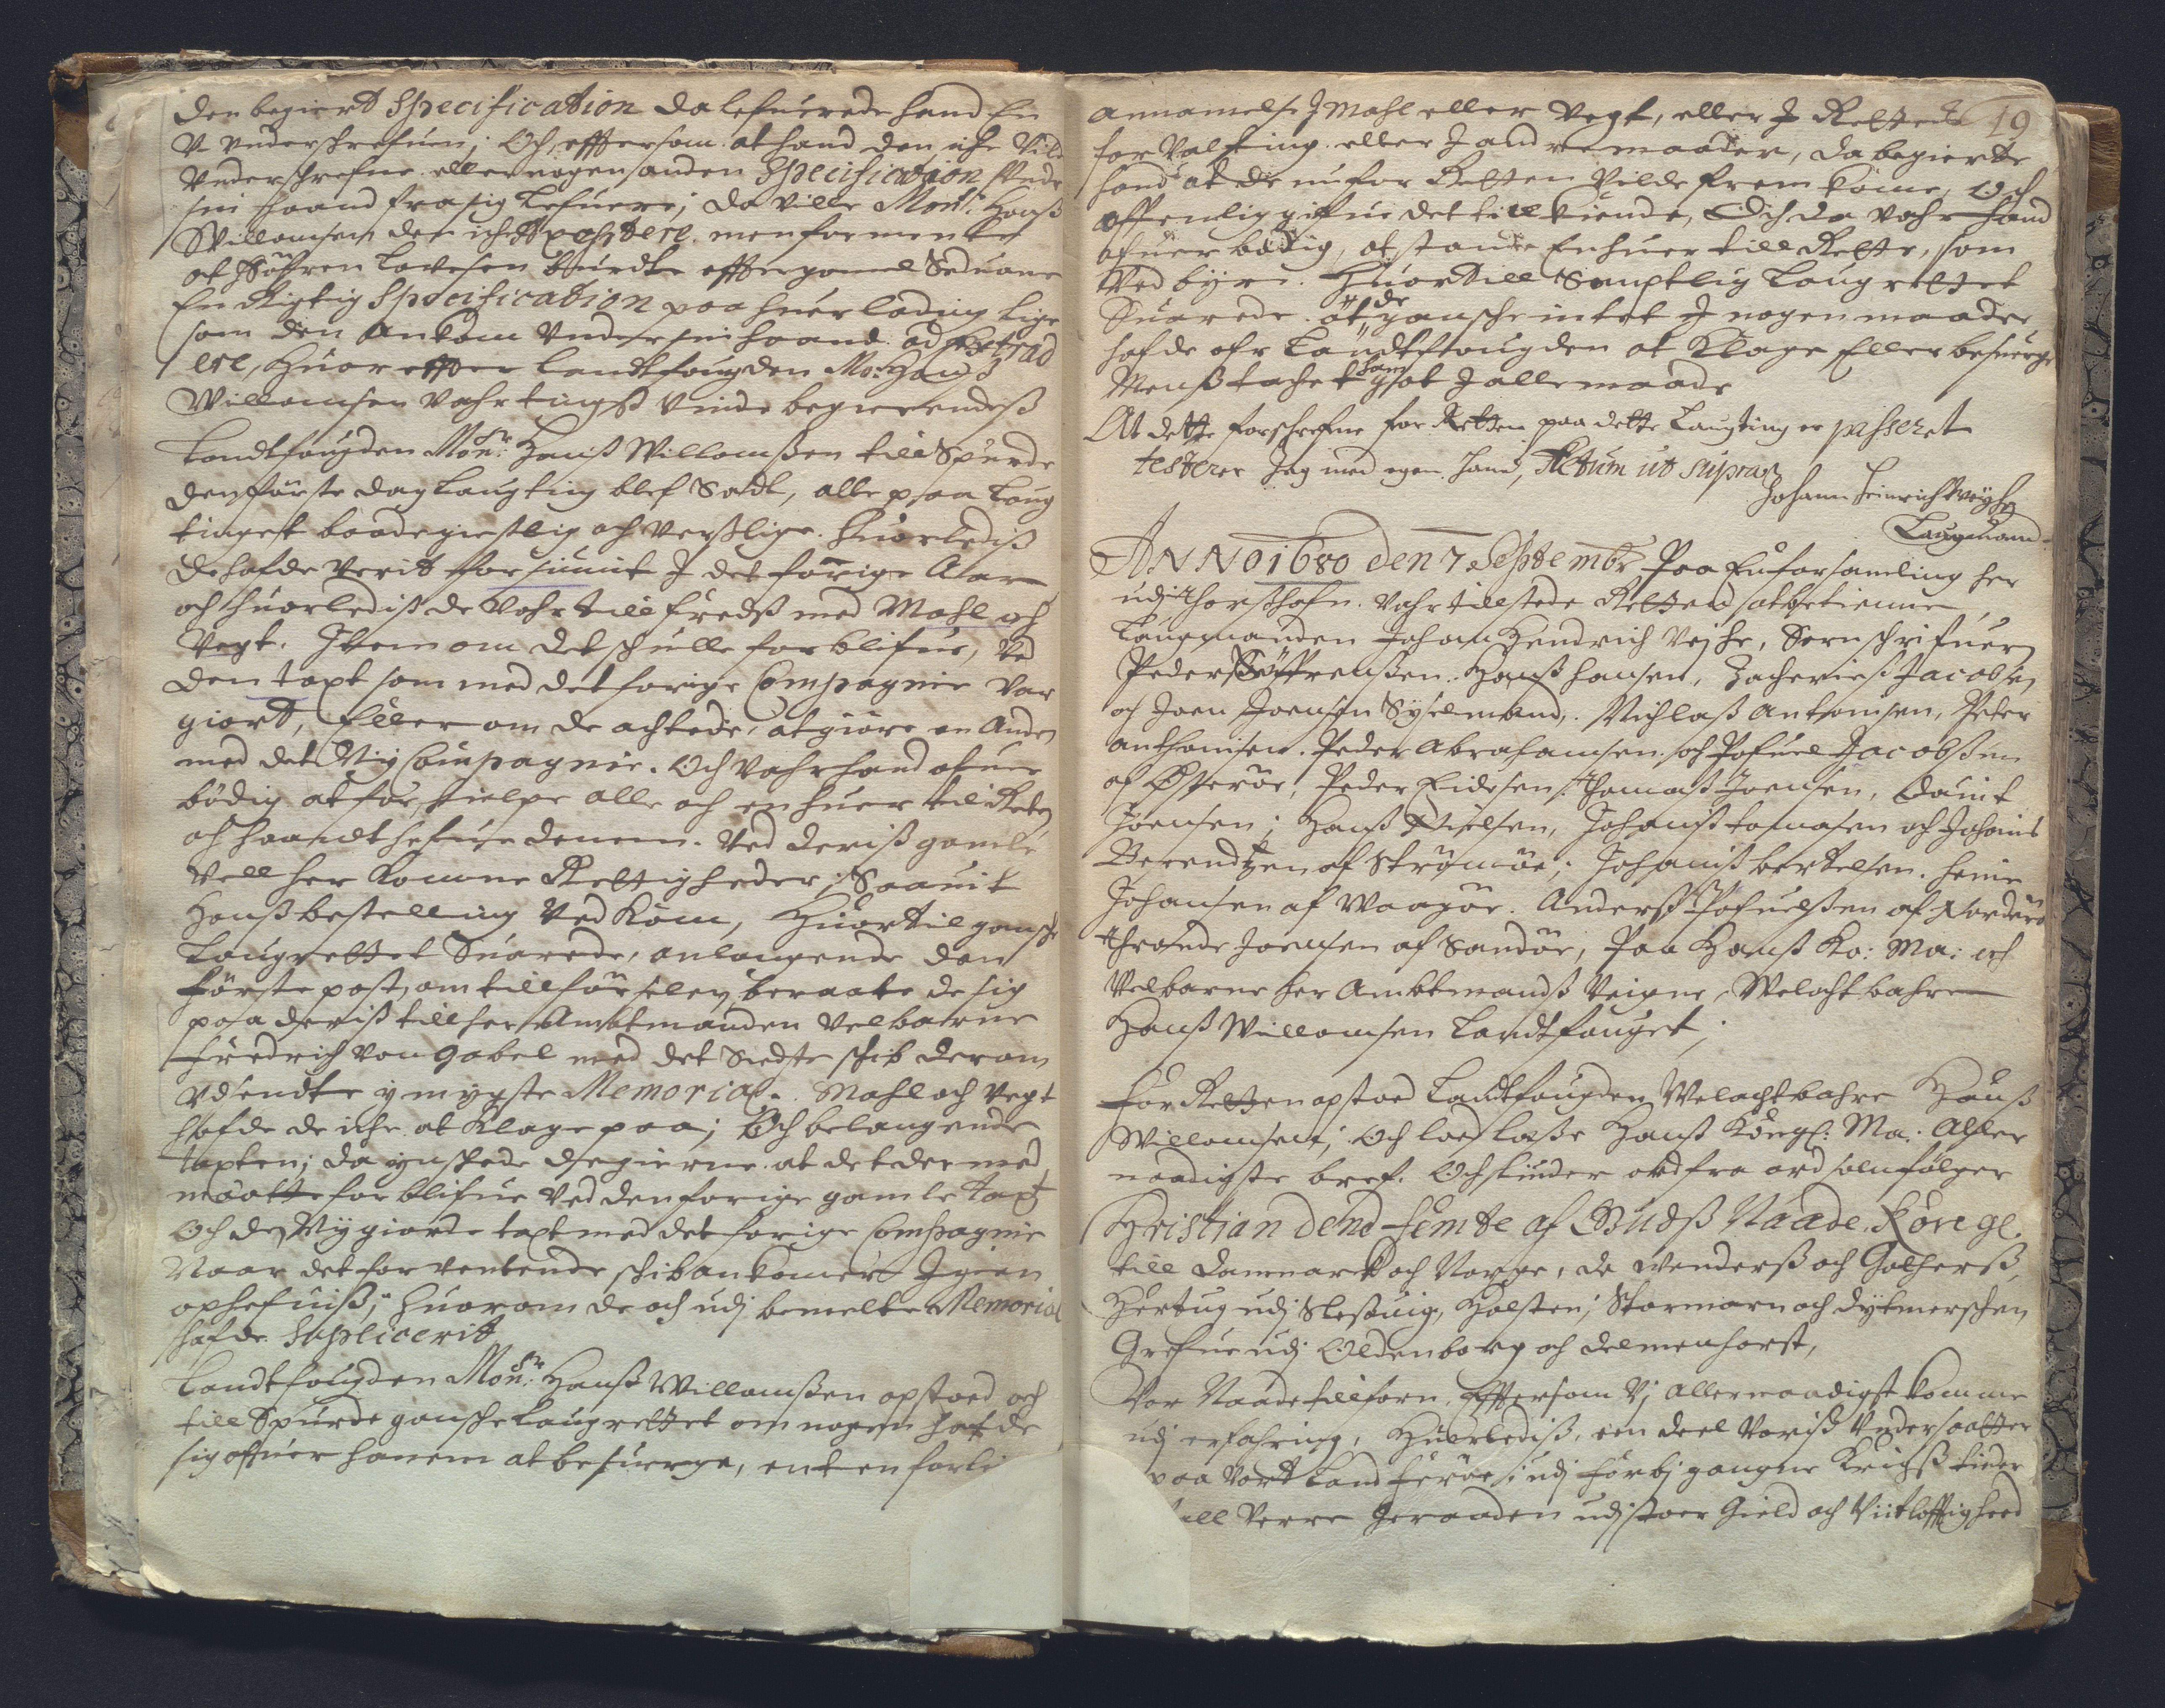 den begiert Specification da lefuerede hand En
U-underschrefuen; Och effttersom at hand den iche Vilde
Underschrefue eller nogen anden Specification Under
sin haand fra sig Lefuere; da ville Mons: Hanß
Willomsen den iche Acceptere men formente
at Söfren Lovesen burdte effter gamel Seduane
En Rigtig Specification paa huer lading lige
som den ankom under sin haand ad Extrad
ere, Huor effter landtfougden Mo: Hanß
Willomsen Vahr tingß Vinde begierendeß
Landtfougden Monsr: Hanß Willomßen till Spurde
den förste dag Laugting blef Sadt, alle paa Laug
tinget baade giestlig och Verßlige. Huorlediß
de hafde Verit forsiunit I det forrige Aar
och Huorlediß de Vahr till fredß med Mahl och
Vegt. Item om det schulle forblifue, Ved
den taxt som med det forige Compagnie Var
giort, Eller om de achtede, at giöre en Anden
med det Ny Compagnie. Och Vahr hand ofuer
bödig at for hielpe alle och en huer till Reten
och haandthefue dennem Ved deriß gamle
Vell her komne Rettigheder; Saauit
Hanß bestelling Ved kom, Huortil gansche
Laugrettet Suarede, anlangende den
förste post, om tillförselen beraabte de sig
paa deriß till her Ambtmanden Velbaarne
Friedrich Von Gabel med det Sidste schib derom
Udsendte ÿdmygste Memorial. Mahl och Vegt
hafde de iche at Klage paa; Och belangende
taxten; da ynschede de gierne at det der med
maatte forblifue Ved den forige gamle taxt
Och den Ny giorde taxt med det forige Compagnie
Naar det forventende schib ankomer Igien
ophefuiß; huorom de och udj bemelte Memorial
hafde Supplicerit
Landtfougden Monsr: Hanß Willomßen opstoed och
till Spurde gansche Laugrettet om nogen hafde
sig ofuer hanem at besuerge, enten forli
19
annamelse I Mahl eller Vegt, eller I Rettens
forValting eller I andre maader, da begierte
hand at de nu for Retten Vilde frem komme, Och
offentlig gifue det till kiende, Och da Vahr hand
ofuer bödig, at stande Enhuer till Rette, som
Ved byr. Huortill Samptlig Laugrettet
Suarede at de gansche intet I nogen maader
hafde ofr Landtfougden at Klage Eller besuerge
Menß tachet ham got I alle maade
At dette forschrefne for Retten paa dette Laugting er passeret
testerer Jeg med egen Hand, Actum ut supra
Johann Heinrich Weyhe
Laugmand
ANNO 1680 den 7 Septembr Paa En forsamling her
udj Thorßhafn Vahr tillstede Retten at betienne,
Laugmanden Johan Hendrich Veyhe, Sornschrifuer
Peder Söffrenßen. Hanß Hansen, Zacherieß Jacobsen
och Joen Joensen Sysselmænd, Nichlaß Anthonisen, Peter
Anthonisen. Peder Abrahamsen och Pofuel Jacobßen
af Österöe, Peder Eidesen. Thomaß Joensen, Dauit
Joensen; Hanß Nielsen, Johanß tomasen och Johanis
Berendtzen af Strömöe; Johanß bertelsen. Heine
Johansen af Waagöe. Anderß Pofuelßen af Norderö
Thrönde Joensen af Sandöe, Paa Hanß Ko: Ma: och
Velbarne her Ambtmandß Veigne, Velacht bahre
Hanß Willomsen Landtfouget;
For Retten opstoed Landtfougden Velachtbahre Hanß
Willomsen; Och loed læße Hanß Kongl: Ma: Aller
naadigste bref. Och liuder ord fra ord som fölger
Christian dend femte af Gudß Naade, Konge
till Danmarck och Norge, de Wenderß och Gotherß,
Hertug udj Sleßuig, Holsten; Stormarn och Dytmerschen
Grefue udj Oldenborg och Delmenhorst,
Vor Naade tillforn. Effttersom Vj allernaadigst komme
udj erfahring, Huorlediß, een deel Voriß Undersaatter
paa Vort Land Feröe; udj forbj gangne Krigß tider
till Verre Geraaden udj stoer Gield och Vitlöfftigheed